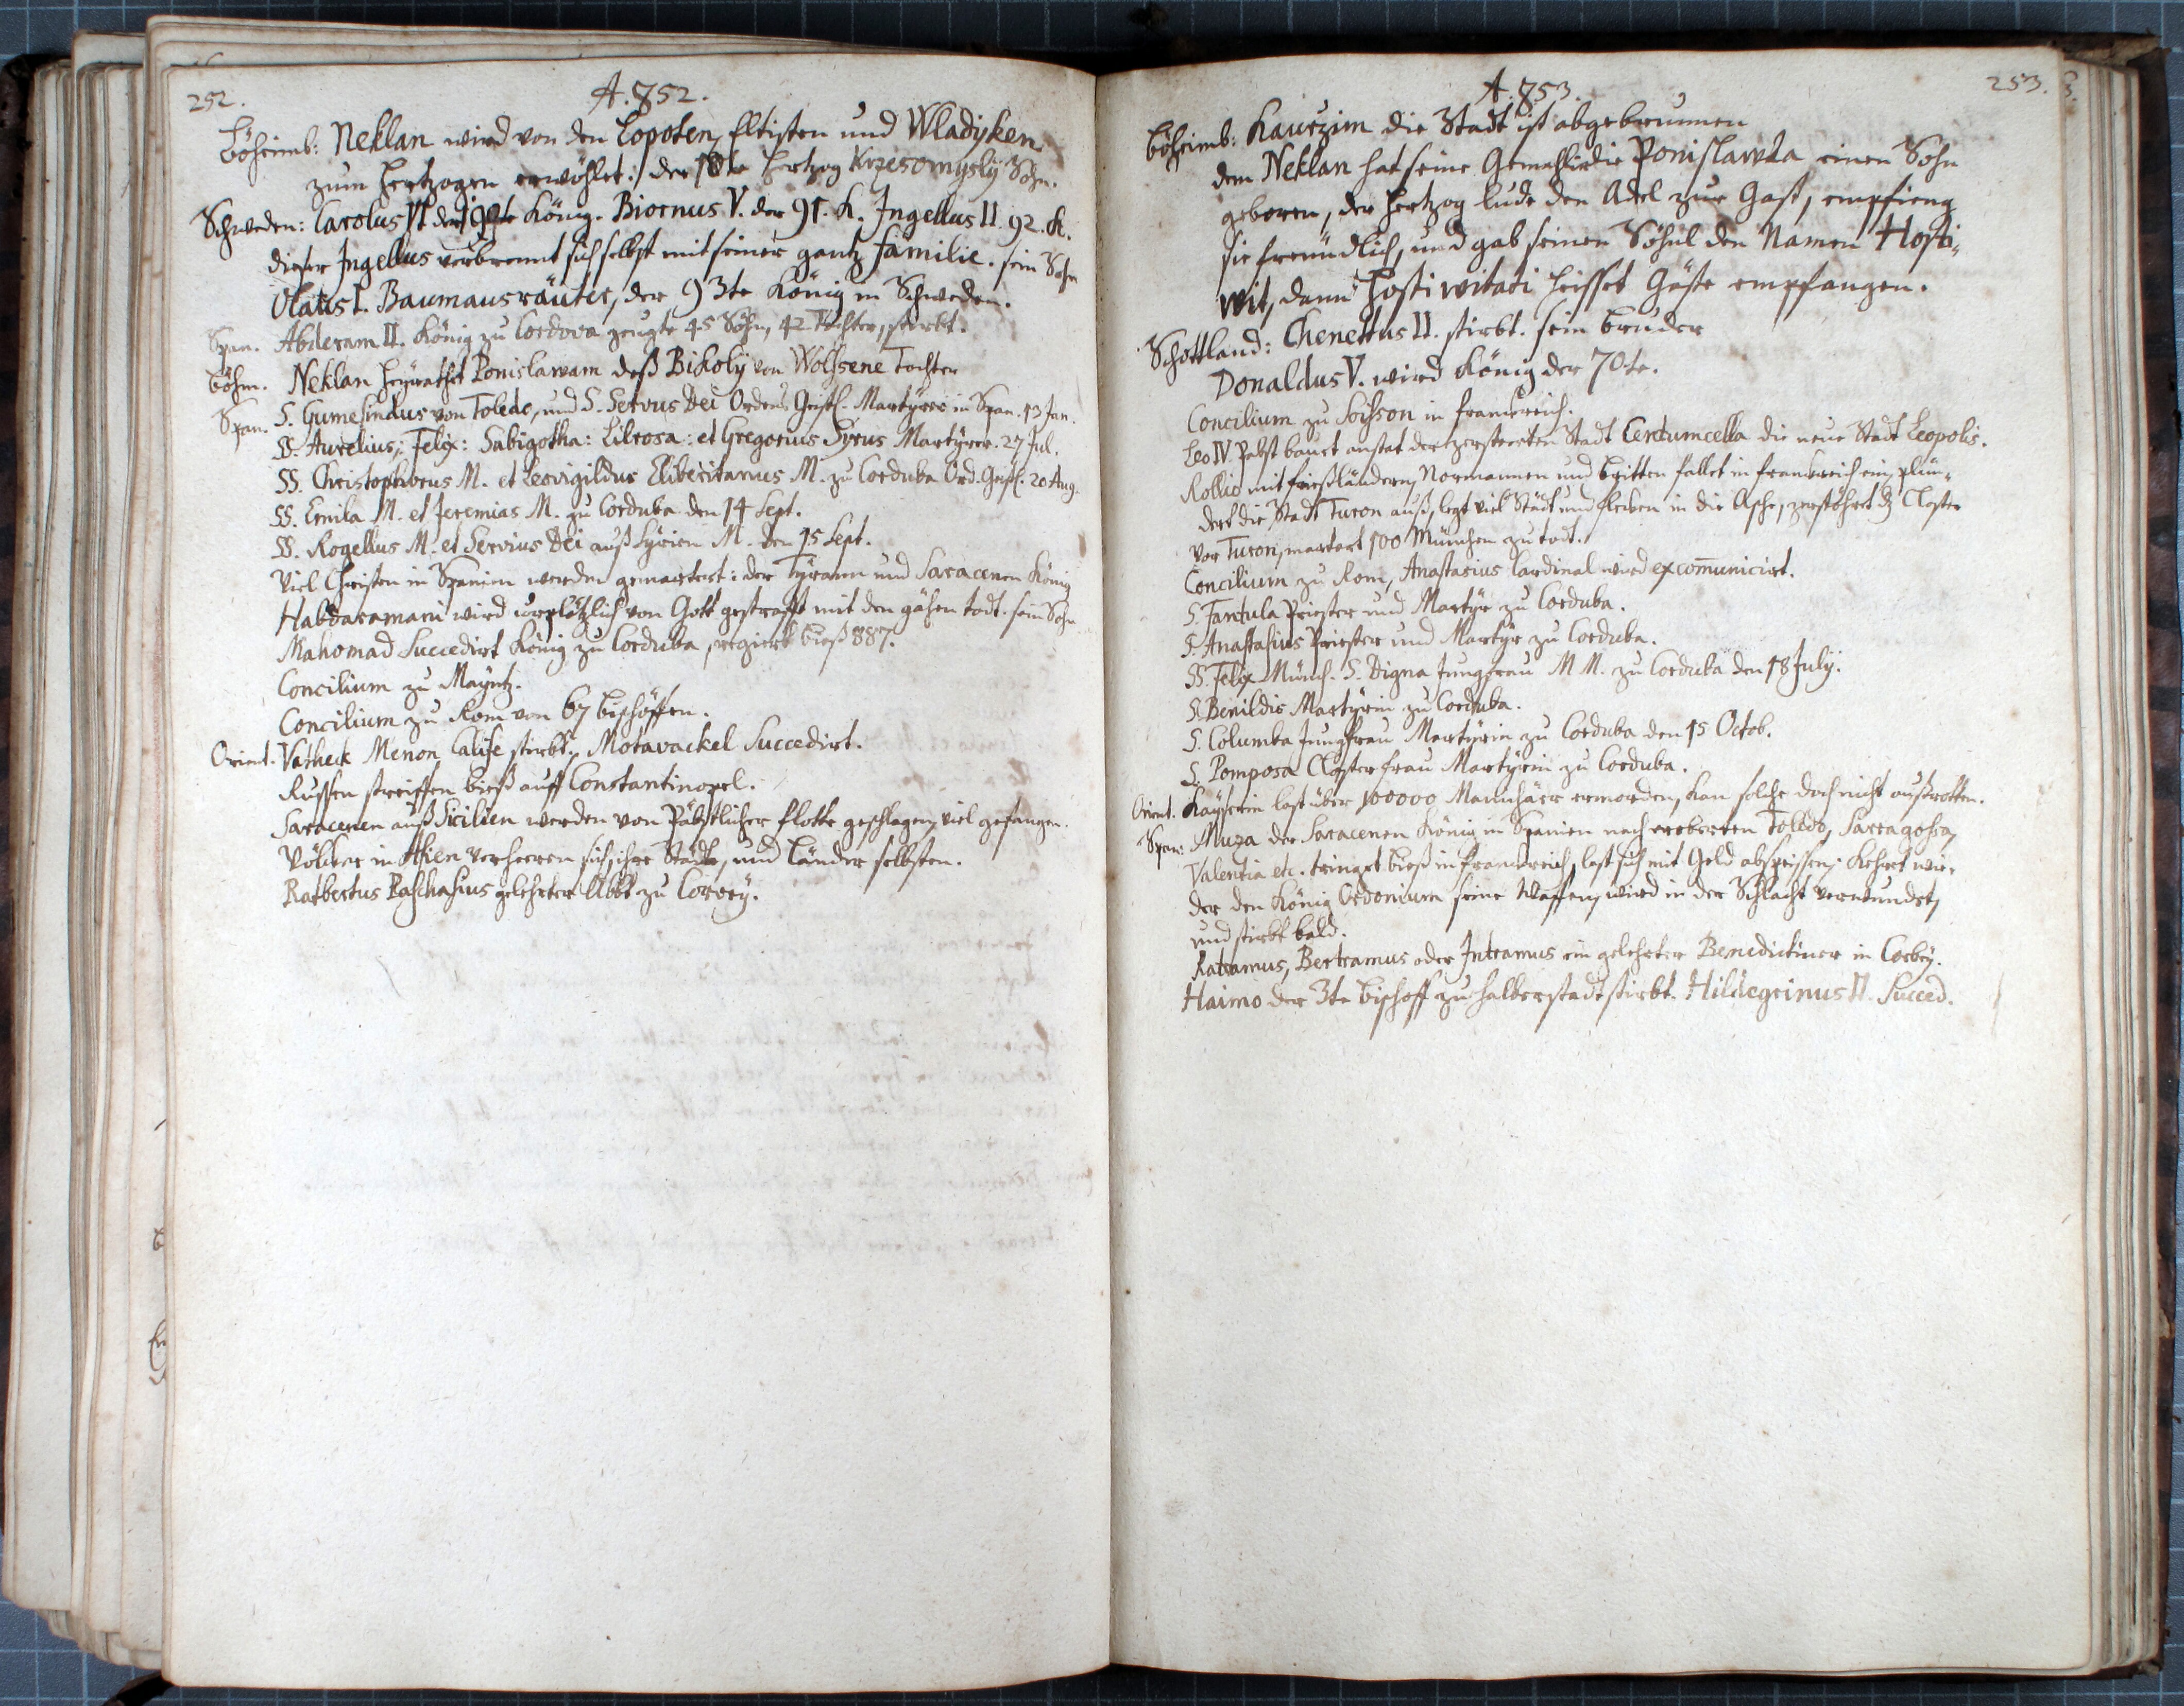 252.
A. 852.
Böheimb: Neklan wird von den Lopoten, Eltisten und Wladyken
zum Hertzogen erwöhlet: der 10te Hertzog Krzesomysly Sohn.
Schweden: Carolus VI der 90te König. Biornus V. der 91. K. Ingellus II. 92. K.
dieser Ingellus verbrennt sich selbst mit seiner gantz familie. sein Sohn
Olaus I. Baumausräuter, der 93te König in Schweden.
Span. Abderam II. König zu Cordova zeugte 45 Söhn, 42 Töchter, sterbt.
Böhm. Neklan heyrathet Ponislawam deß Bikoly von Wolssene Tochter
Span. S. Gumesindus von Toledo, und S. Servus Dei Ordens Geistl. Martyrer in Span. 13 Jan.
SS. Aurelius: Felix: Sabigotha: Liliosa: et Gregorius Syrus Martyrer. 27 Jul.
SS. Christophorus M. et Leovigildus Eliberitanus M. zu Corduba Ord. Geistl. 20 Aug.
SS. Emila M. et Jeremias M. zu Corduba den 14 Sept.
SS. Rogellus M. et Servius Dei auß Syrien M. den 15 Sept.
Viel Christen in Spanien werden gemartert: der Tyrann und Saracenen König
Habdaramani wird urplötzlich von Gott gestrafft mit den gähen todt. sein Sohn
Mahomad Succedirt König zu Corduba, regiert bieß 887.
Concilium zu Mayntz.
Concilium zu Rom von 67 Bischöffen.
Orient. Vatheck Menon Calife stirbt, Motavackel Succedirt.
Russen streiffen bieß auff Constantinopel.
Saracenen auß Sicilien werden von Päbstlicher flotte geschlagen, viel gefangen.
Völcker in Asien verheeren sich, ihre Städte, und Länder selbsten.
Ratbertus Paschasius gelehrter Abbt zu Corvey.
253.
A. 853.
Böheimb: Kaurzim die Stadt ist abgebrunnen
dem Neklan hat seine Gemahlin die Ponislawka einen Sohn
geboren, der Hertzog lude den Adel zur Gast, empfieng
sie freundlich, und gab seinen Söhnl den Namen Hosti-
wit, dann Hostiwitati heisset Gäste empfangen.
Schottland: Chenettus II. stirbt. sein Bruder
Donaldus V. wird König der 70te.
Concilium zu Soisson in Franckreich.
Leo IV Pabst bauet anstat der zersteerten Stadt Centumcella die neue Stadt Leopolis.
Rollio mit Frießländern, Normannen und Britten fallet in Franckreich ein, plün-
dert die Stadt Turon auß, legt viel Städt und Flecken in die Asche, zerstöhret dz Closter
vor Turon, martert 100 München zu todt.
Concilium zu Rom, Anastasius Cardinal wird excom̄unicirt.
S. Fantula Priester und Martyr zu Corduba.
S. Anastasius Priester und Martyr zu Corduba.
SS. Felix Münch. S. Digna Jungfrau M M. zu Corduba den 18 July.
S. Benildis Martyrin zu Corduba.
S. Columba Jungfrau Martyrin zu Corduba den 15 Octob.
S. Pomposa Closterfrau Martyrin zu Corduba.
Orient. Kayserin last über 100000 Manichäer ermorden, kan solche doch nicht außrotten.
Span: Muza der Saracenen König in Spanien nach eroberten Toledo, Sarragossa,
Valentia etc. tringet bieß in Franckreich, last sich mit Geld abspeissen. Kehret wie-
der den König Ordonium seine Waffen, wird in der Schlacht verwundet,
und stirbt bald.
Ratramus, Bertramus oder Intramus ein gelehrter Benedictiner in Corbey.
Haimo der 3te Bischoff zu Halberstadt stirbt. Hildegrinus II. Succed.